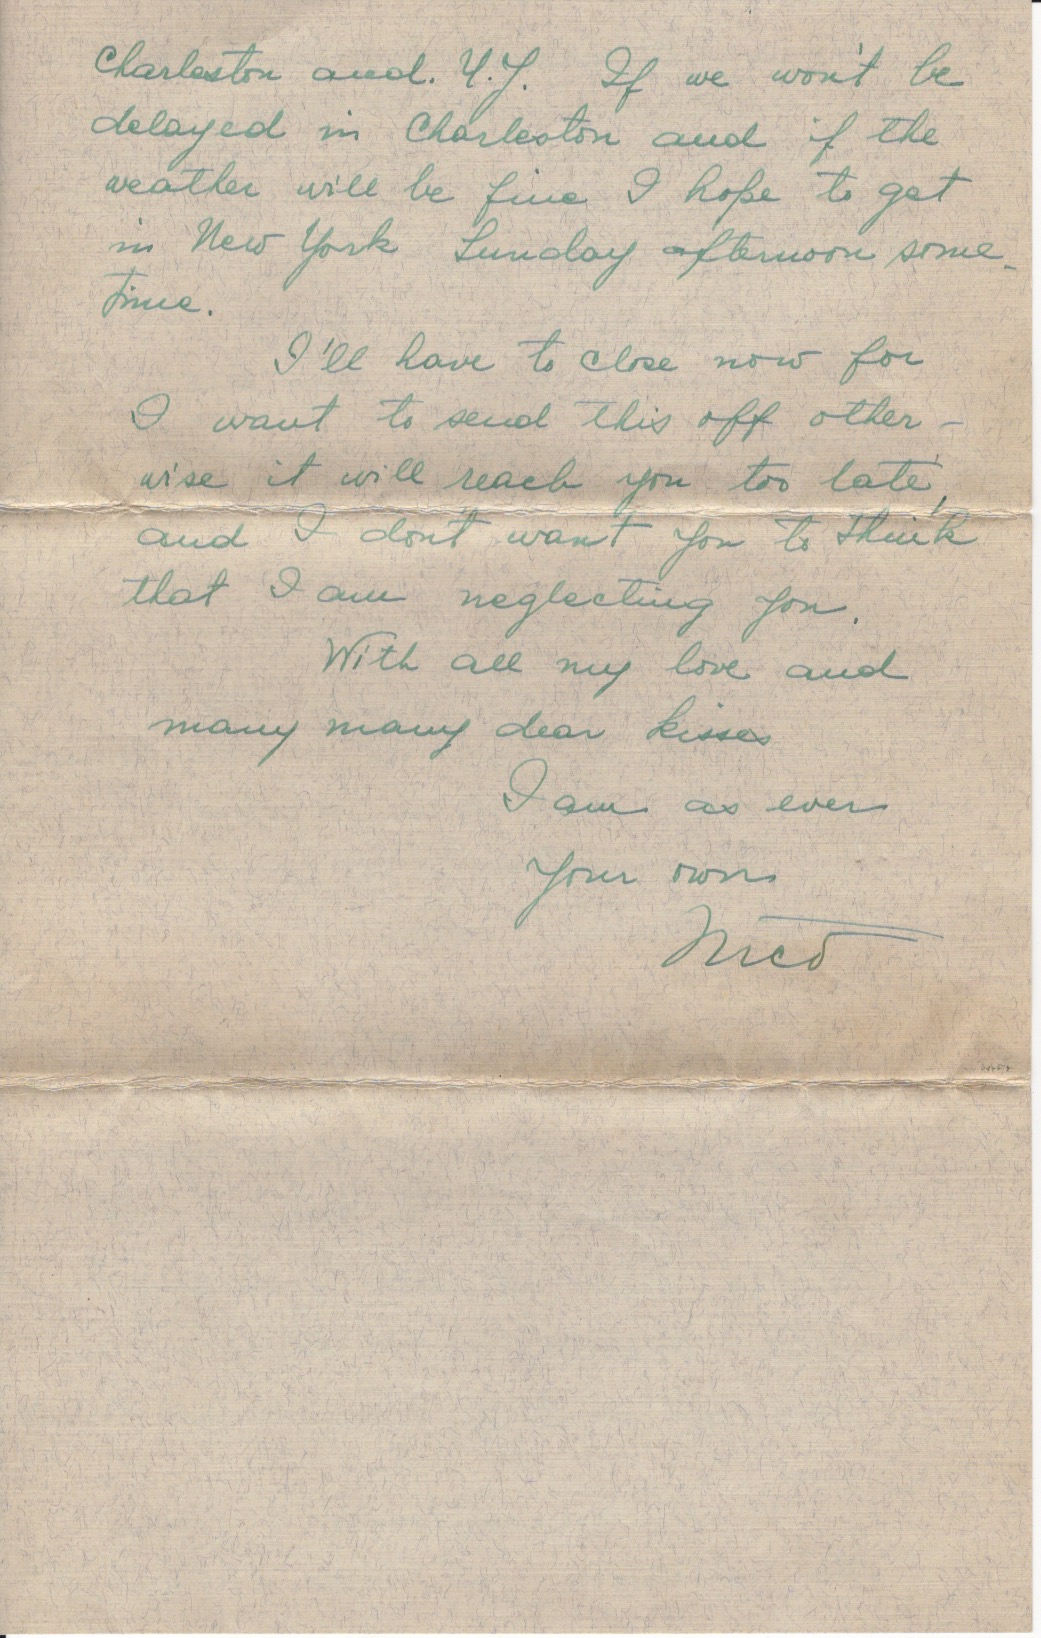 Charleston and. N.Y. If we won't be
delayed in Charleston and if the
weather will be fine I hope to get
in New York Sunday afternoon some-
time.
I'll have to close now for
I want to send this off other-
wise it will reach you too late,
and I don't want you to think
that I am neglecting you.
With all my love and
many many dear kisses
I am as ever
Your own